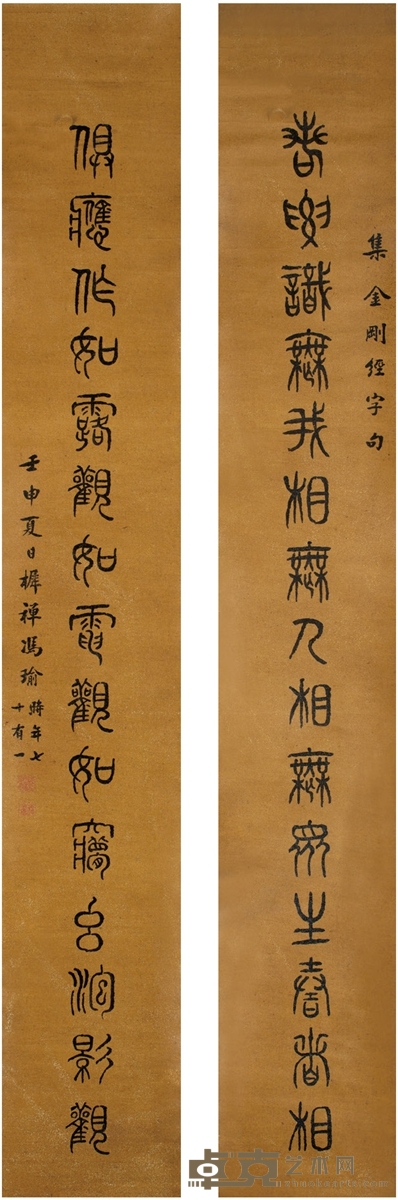 集金剛經字句
識無我相無人相無眾生壽者相
俱應作如露觀如電觀如夢幻泡影觀
壬申夏日樨禪馮瑜
時年七
十有一
卓克艺术网